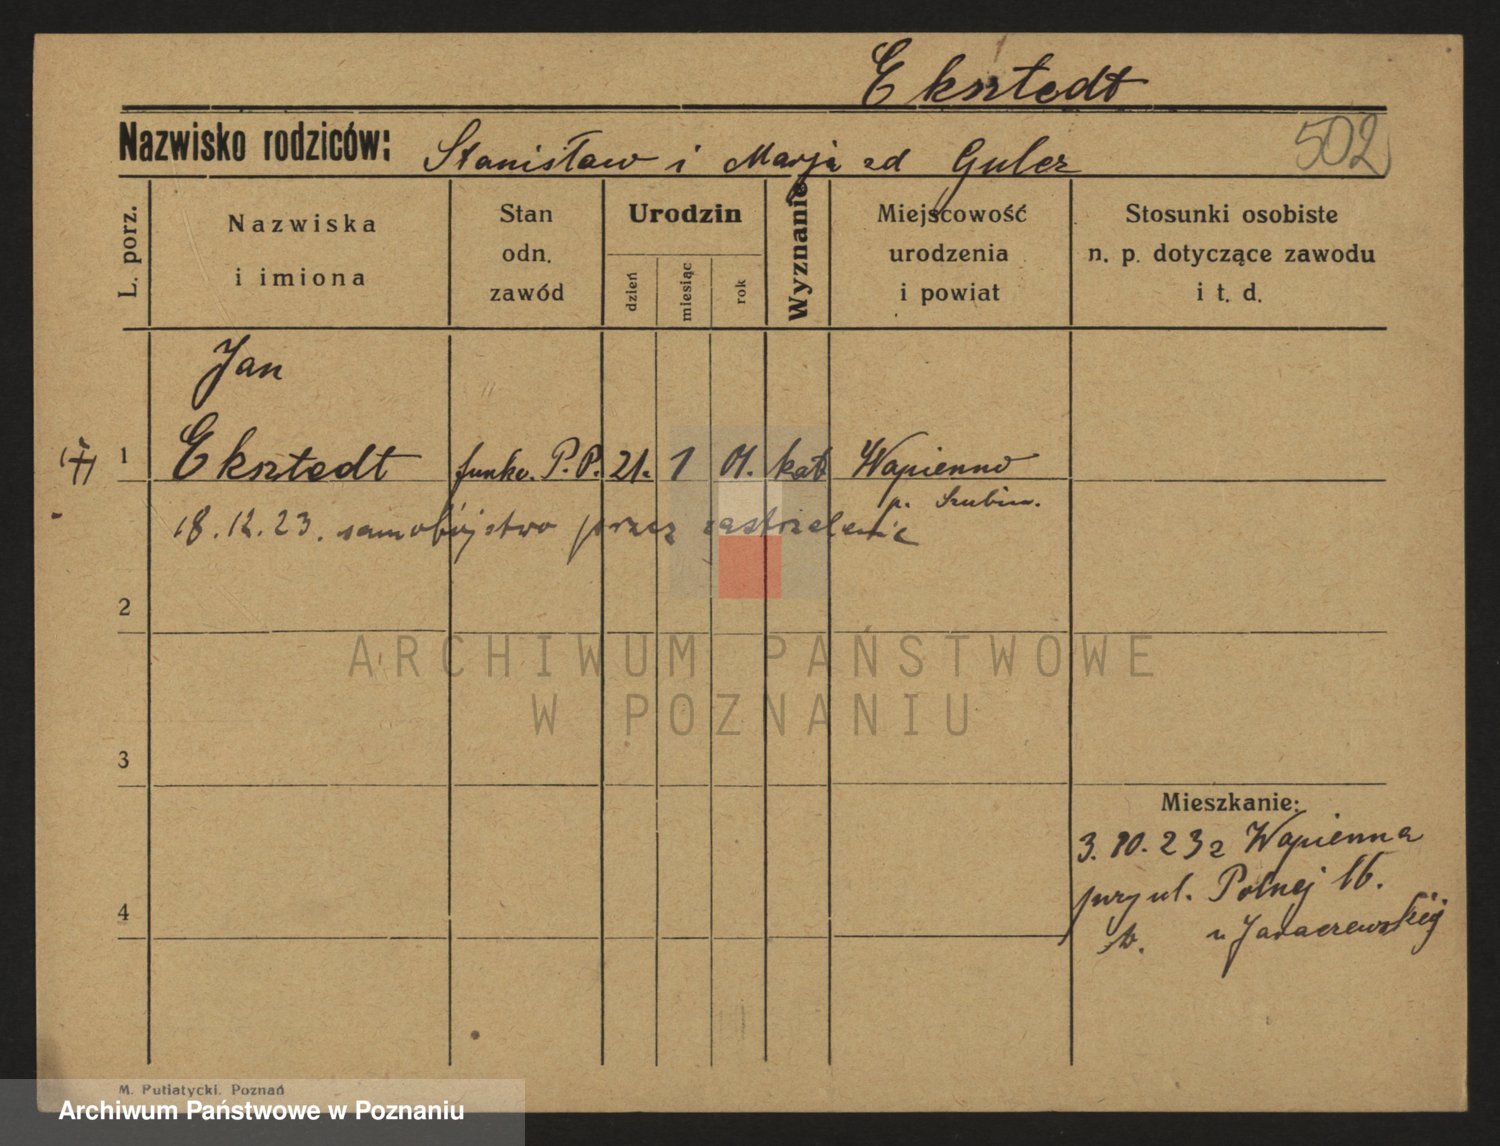 Eksztedt
Nazwisko rodziców: Stanisław i Marja zd Gulcz 502
L. porz.
Nazwiska i imiona
Stan odn. zawód
Urodzin
dzień
miesiąc
rok
Wyznanie
Miejscowość urodzenia i powiat
Stosunki osobiste n. p. dotyczące zawodu i t. d.
Jan
1 Eksztedt funko. P.P. 21. 1 01. kat Wapienno
p. Szubin.
18.12.23. samobójstwo przez zastrzelenie
2
ARCHIWUM PAŃSTWOWE
W POZNANIU
3
Mieszkanie:
3.10.23 z Wapienna
przy ul. Polnej 16.
4
u Jaraczewskiej
M. Putiatycki. Poznań
Archiwum Państwowe w Poznaniu